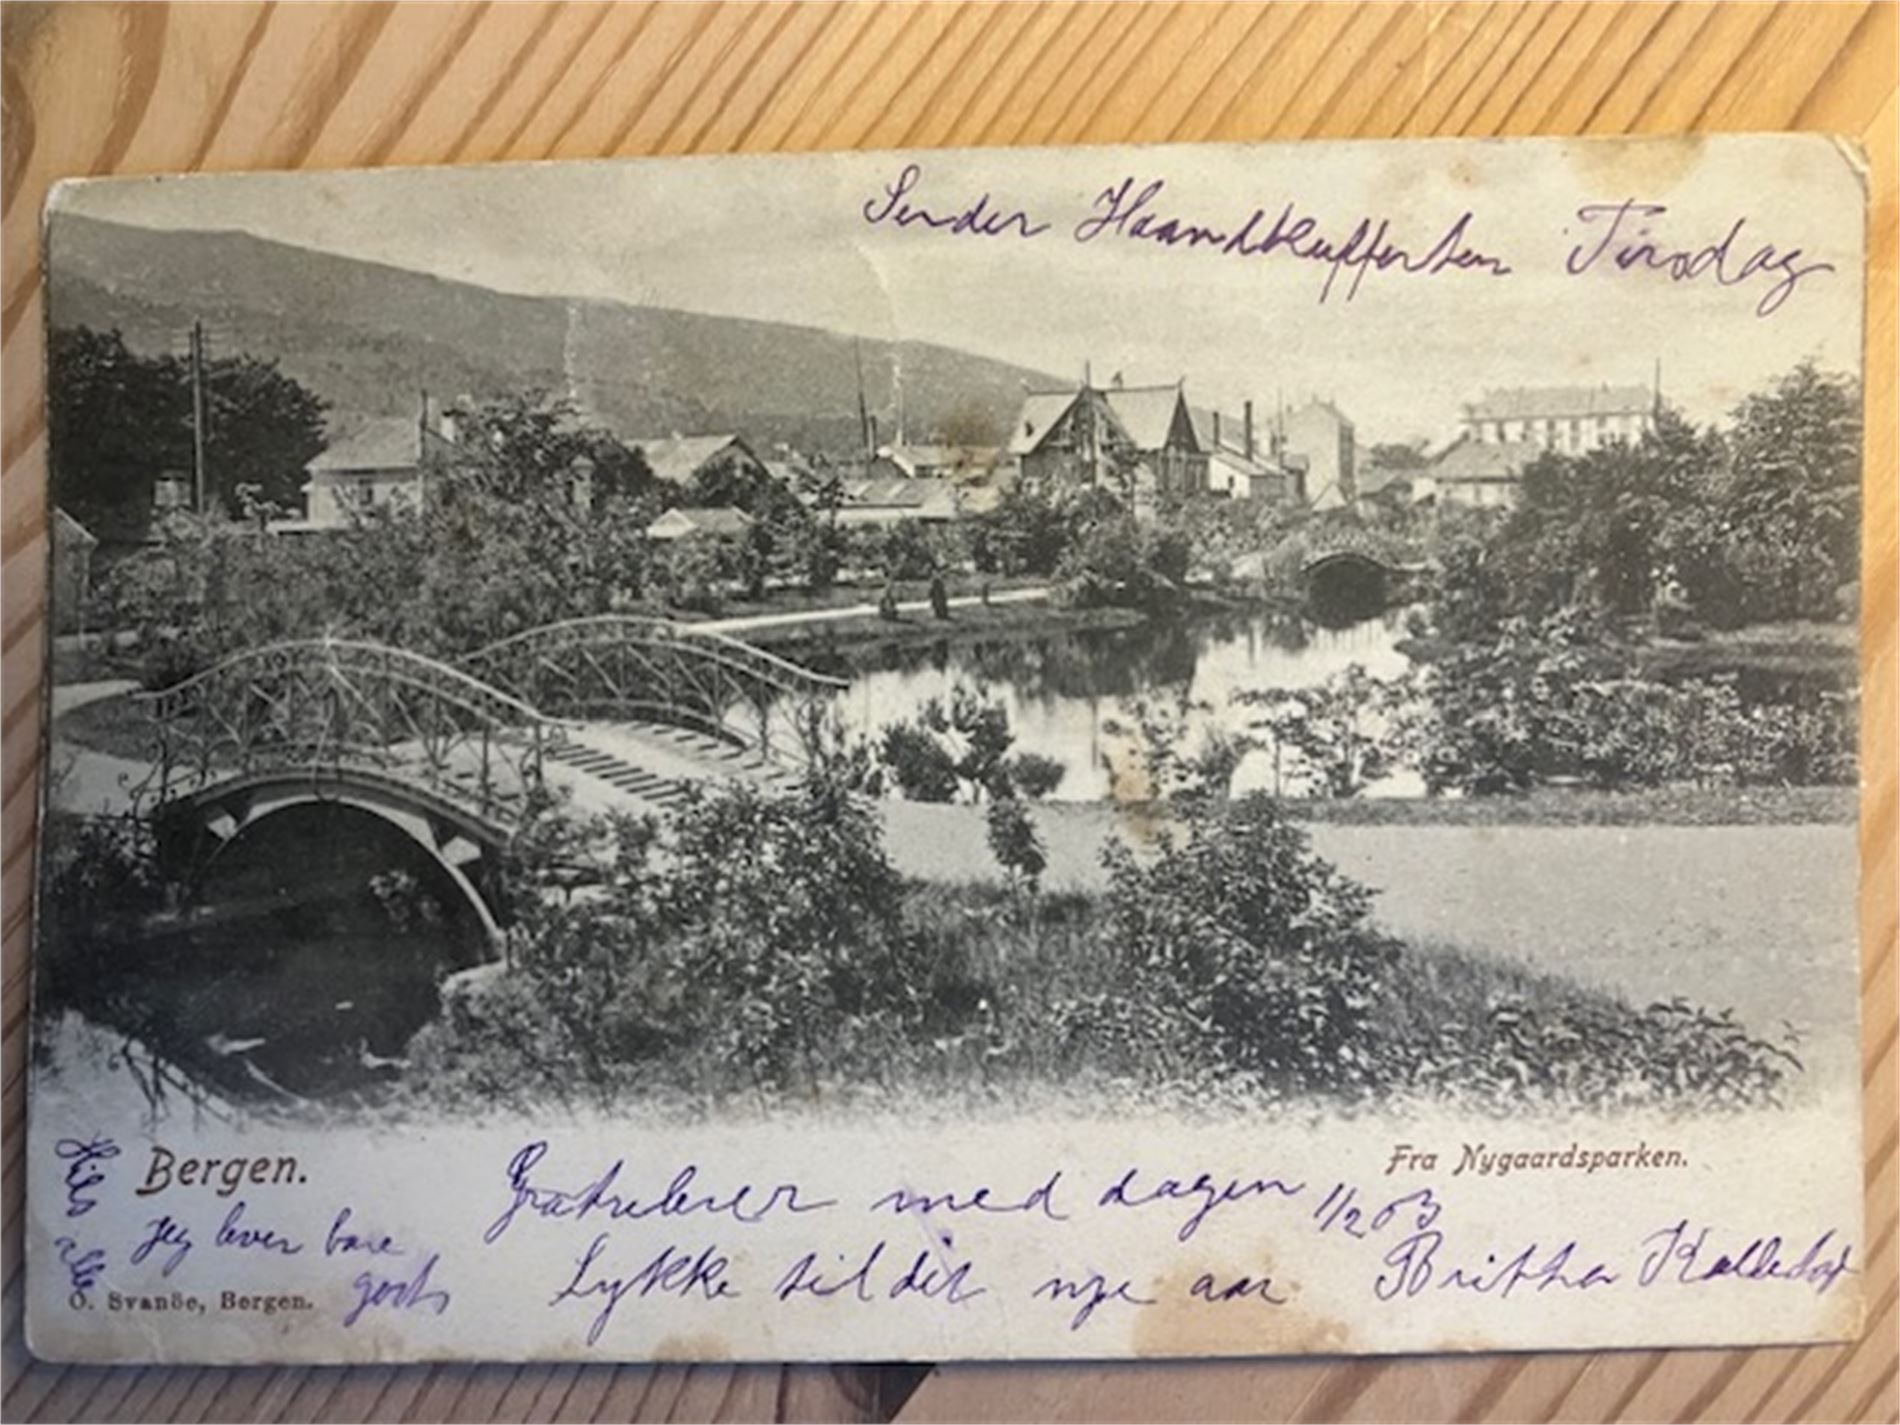 Sender Haandkufferten Tirsdag
Bergen.
Fra Nygaardsparken.
Hils
alle
Gratulerer med dagen 1/2 03
Jeg lever bare
godt
Lykke til dit nye aar
Brittha
O. Svanöe, Bergen.